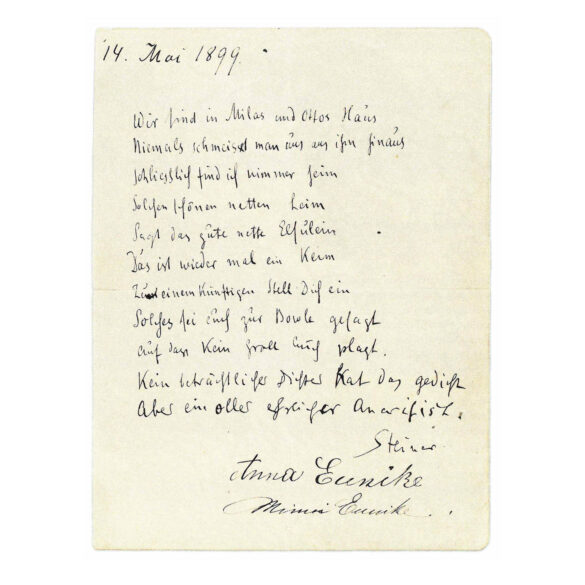 14. Mai 1899.
Wir sind in Milas und Ottos Haus
Niemals schmeisst man uns aus ihm hinaus
Schliesslich find ich nimmer heim
Solchen schönen netten Heim
Sagt das gute nette Elsulein
Das ist wieder mal ein Keim
einem künftigen Stell Dich ein
Solches sei euch zur Bowle gesagt
auf dass kein Groll Euch plagt.
Kein beträchtlicher Dichter hat das gedicht
Aber ein oller ehrlicher Anarchist.
Steiner
Anna Eunike
Minni Eunike.